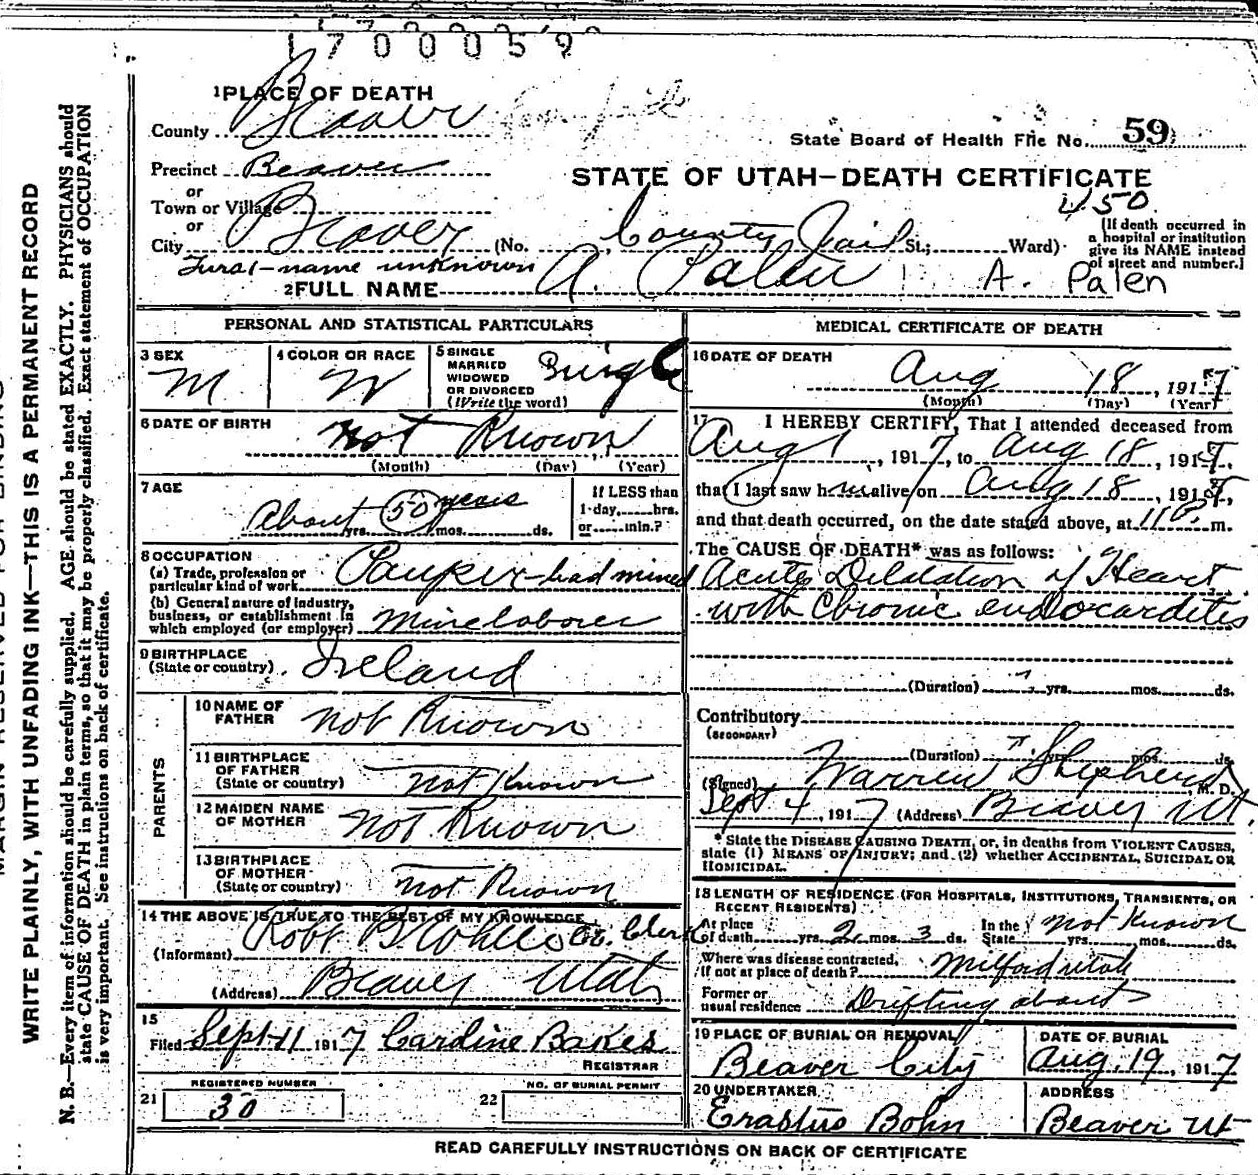 1700059
1 PLACE OF DEATH
County Beaver
State Board of Health File No. 59
Precinct Beaver
STATE OF UTAH—DEATH CERTIFICATE
or
Town or Village
or
City Beaver (No. County Jail St.; Ward)
[If death occurred in
a hospital or institution
give its NAME instead
of street and number.]
First-name unknown
2 FULL NAME A. Palen A. Palen
PERSONAL AND STATISTICAL PARTICULARS
3 SEX
M
4 COLOR OR RACE
W
5 SINGLE
MARRIED
WIDOWED
OR DIVORCED
(Write the word)
Single
6 DATE OF BIRTH
not Known
(Month) (Day) (Year)
7 AGE
About 50 years
yrs. mos. ds.
If LESS than
1 day, hrs.
or min.?
8 OCCUPATION
(a) Trade, profession or
particular kind of work
Pauper - had mined
(b) General nature of industry,
business, or establishment in
which employed (or employer)
Mine laborer
9 BIRTHPLACE
(State or country)
Ireland
PARENTS
10 NAME OF
FATHER
not Known
11 BIRTHPLACE
OF FATHER
(State or country)
not Known
12 MAIDEN NAME
OF MOTHER
not Known
13 BIRTHPLACE
OF MOTHER
(State or country)
not Known
14 THE ABOVE IS TRUE TO THE BEST OF MY KNOWLEDGE
(Informant) Robt B White Co. Clerk
(Address) Beaver Utah
15
Filed Sept 11 1917 Cardine Bakes
REGISTRAR
REGISTERED NUMBER
21 30
NO. OF BURIAL PERMIT
22
MEDICAL CERTIFICATE OF DEATH
16 DATE OF DEATH
Aug 18, 1917
(Month) (Day) (Year)
17 I HEREBY CERTIFY, That I attended deceased from
Aug 1, 1917, to Aug 18, 1917,
that I last saw him alive on Aug 18, 1917,
and that death occurred, on the date stated above, at 11 P. m.
The CAUSE OF DEATH* was as follows:
Acute Dilatation of Heart
with Chronic endocarditis
(Duration) yrs. mos. ds.
Contributory
(SECONDARY)
(Duration) mos. ds.
(Signed) Warren Shepherd M. D.
Sept 4, 1917 (Address) Beaver Ut.
* State the DISEASE CAUSING DEATH, or, in deaths from VIOLENT CAUSES,
state (1) MEANS OF INJURY; and (2) whether ACCIDENTAL, SUICIDAL OR
HOMICIDAL.
18 LENGTH OF RESIDENCE (FOR HOSPITALS, INSTITUTIONS, TRANSIENTS, OR
RECENT RESIDENTS)
At place
of death yrs. 2 mos. 3 ds.
In the
State yrs. mos. ds.
not Known
Where was disease contracted,
if not at place of death?
Milford Utah
Former or
usual residence Drifting about
19 PLACE OF BURIAL OR REMOVAL
Beaver City
DATE OF BURIAL
Aug. 19, 1917
20 UNDERTAKER
Erastus Bohn
ADDRESS
Beaver Ut
READ CAREFULLY INSTRUCTIONS ON BACK OF CERTIFICATE
WRITE PLAINLY, WITH UNFADING INK—THIS IS A PERMANENT RECORD
N. B.—Every item of information should be carefully supplied. AGE should be stated EXACTLY. PHYSICIANS should
state CAUSE OF DEATH in plain terms, so that it may be properly classified. Exact statement of OCCUPATION
is very important. See instructions on back of certificate.